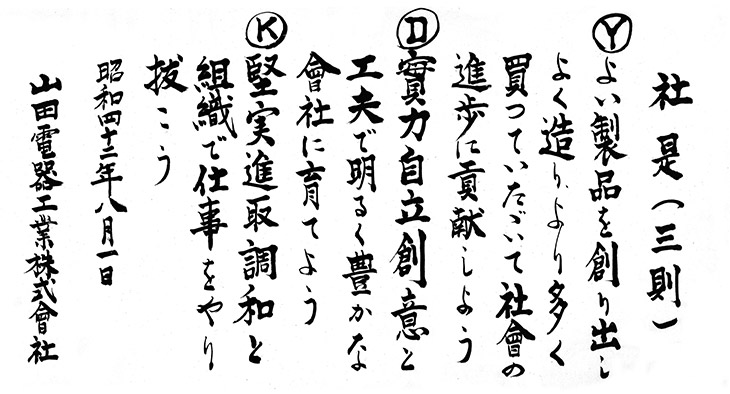 社是(三則)
Ⓨよい製品を創り出し
よく造りより多く
買つていたゞいて社會の
進歩に貢献しよう
Ⓓ實力自立創意と
工夫で明るく豊かな
會社に育てよう
Ⓚ堅実進取調和と
組織で仕事をやり
拔こう
昭和四十二年八月一日
山田電器工業株式會社